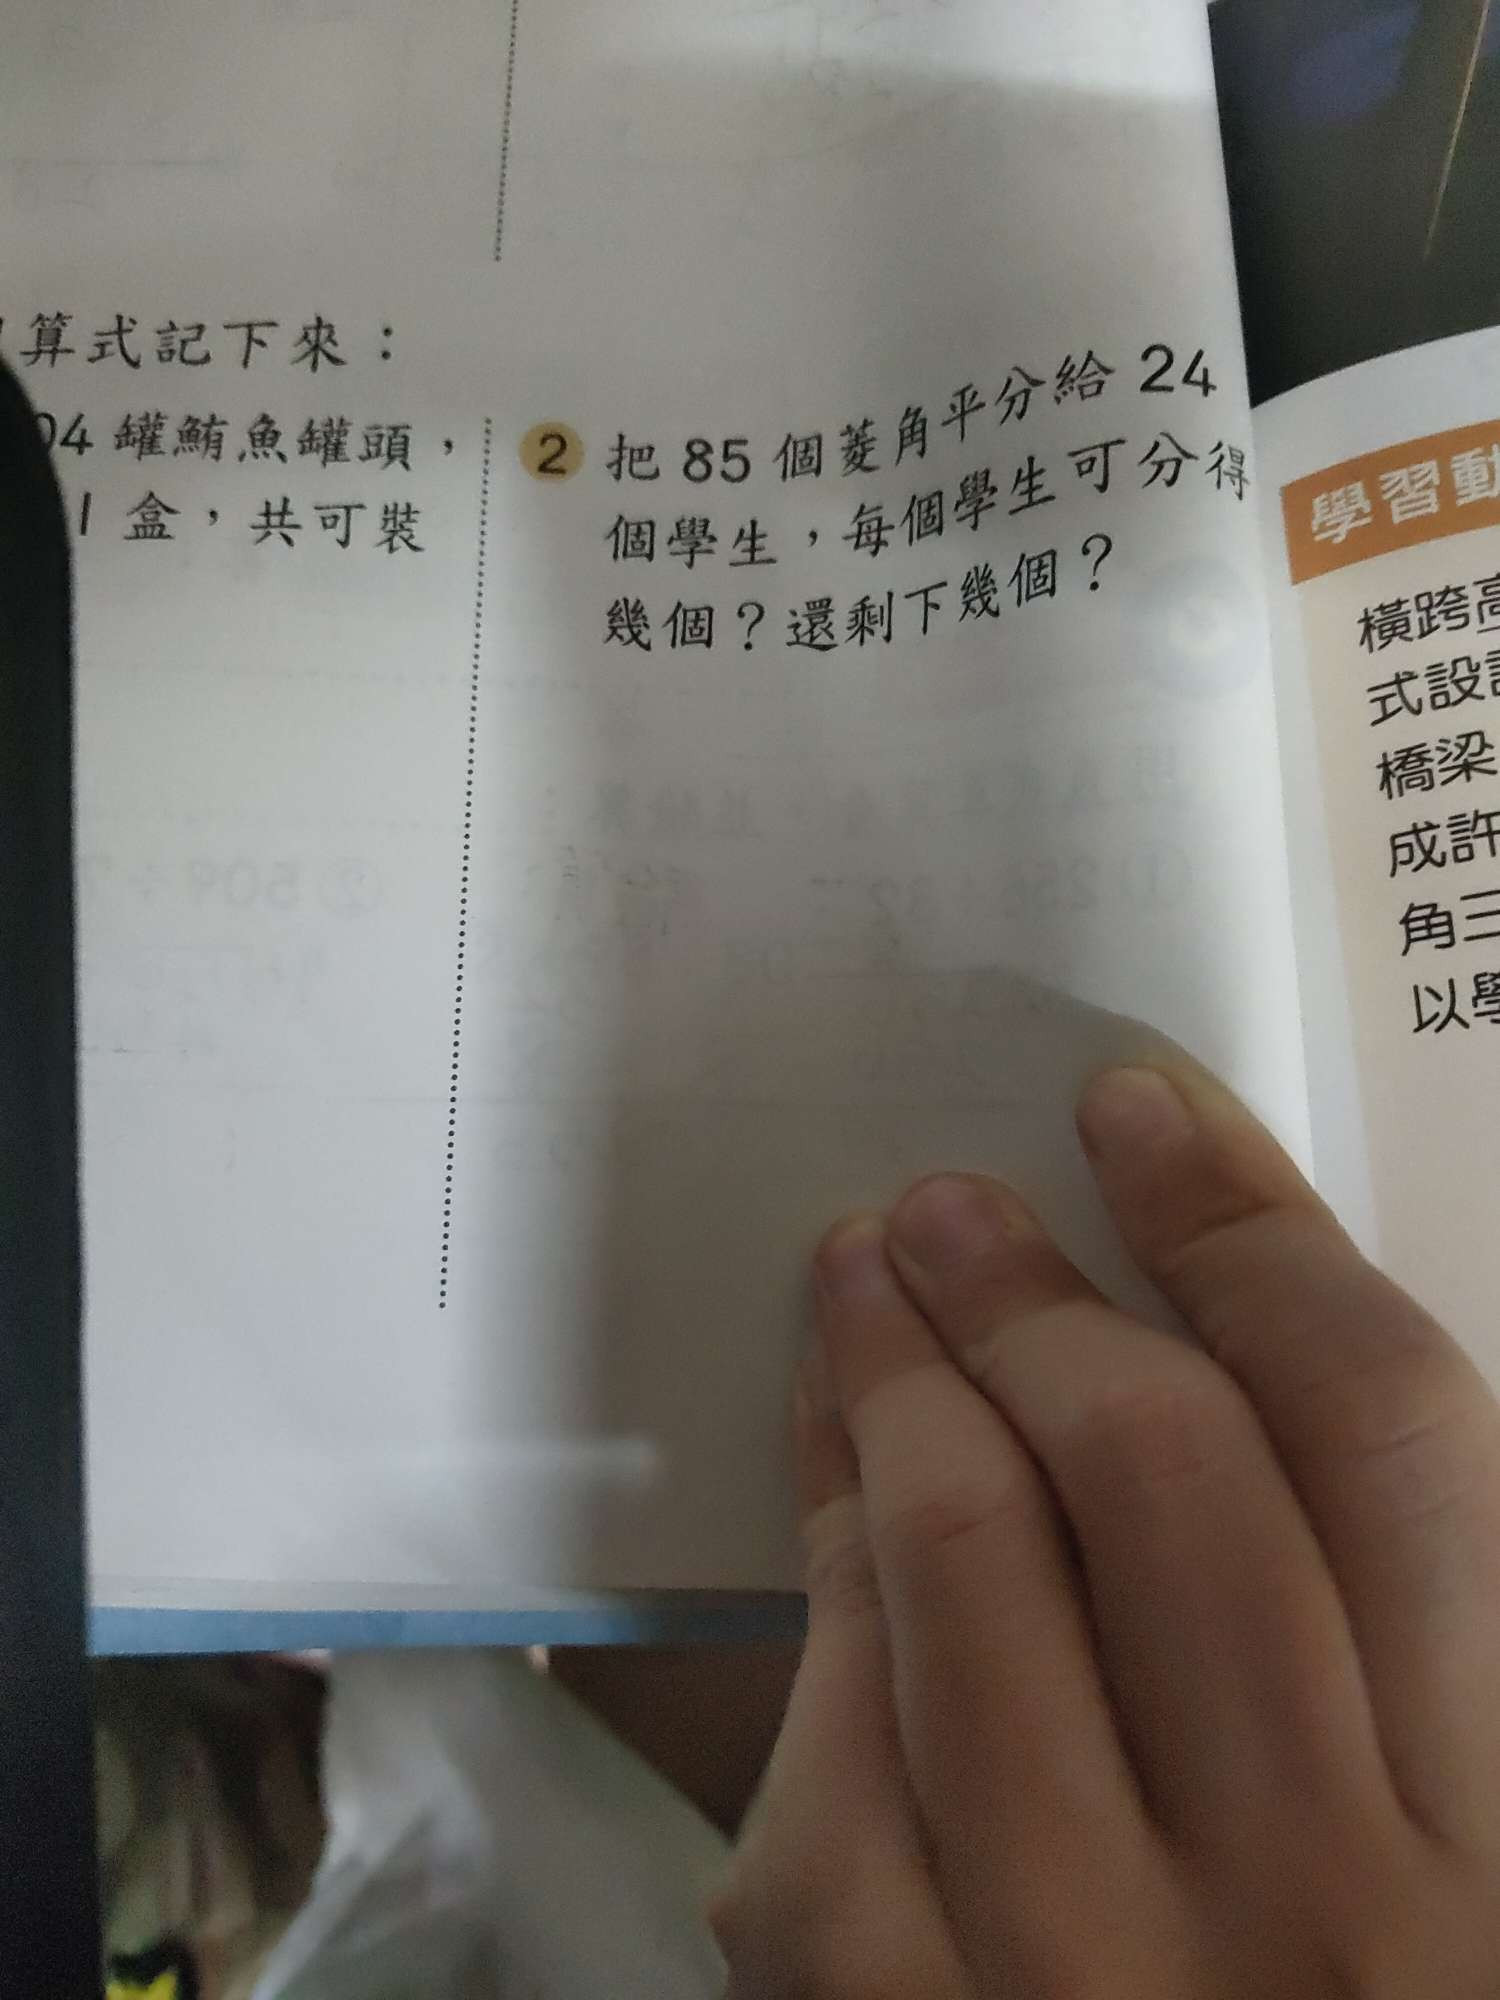 算式記下來：
04 罐鮪魚罐頭，
1 盒，共可裝
2 把 85 個菱角平分給 24
個學生，每個學生可分得
幾個？還剩下幾個？
學習動
橫跨高
式設計
橋梁
成許
角三
以學